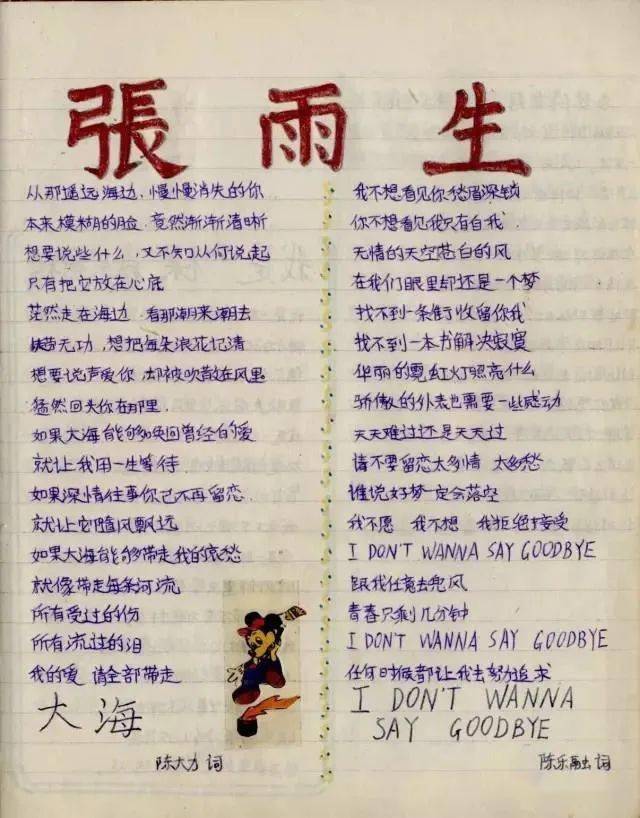 張雨生
从那遥远海边，慢慢消失的你
本来模糊的脸，竟然渐渐清晰
想要说些什么，又不知从何说起
只有把它放在心底
茫然走在海边，看那潮来潮去
无功，想把每朵浪花记清
想要说声爱你，却被吹散在风里
猛然回头你在那里
如果大海能够唤回曾经的爱
就让我用一生等待
如果深情往事你已不再留恋
就让它随风飘远
如果大海能够带走我的哀愁
就像带走每条河流
所有受过的伤
所有流过的泪
我的爱 请全部带走
大海
陈大力 词
我不想看见你愁眉深锁
你不想看见我只有自我
无情的天空苍白的风
在我们眼里却还是一个梦
找不到一条街收留你我
找不到一本书解决寂寞
华丽的霓虹灯照亮什么
骄傲的外表也需要一些感动
天天难过还是天天过
请不要留恋太多情 太多愁
谁说好梦一定会落空
我不愿 我不想 我拒绝接受
I DON'T WANNA SAY GOODBYE
跟我任意去兜风
青春只剩几分钟
I DON'T WANNA SAY GOODBYE
任何时候都让我去努力追求
I DON'T WANNA
SAY GOODBYE
陈乐融 词